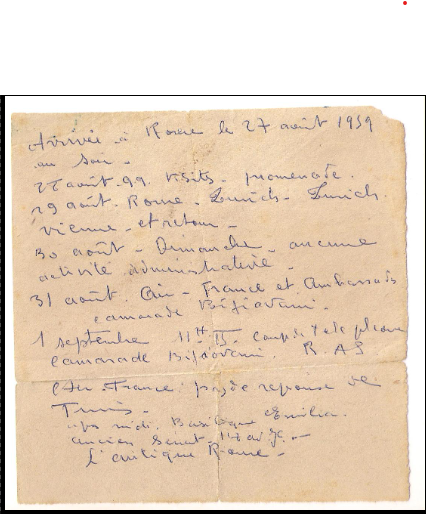 Arrivée à Rome le 27 août 1959
au soir -
août visite - promenade.
29 août. Rome - Zurich - Zurich.
Vienne - et retour -
30 août - Dimanche - aucune
activité administrative -
31 août. Air - France et Ambassade
camarade
1 septembre 11H coup de téléphone
camarade R.A.S
Air-France: pas de réponse de
Tunis -
après midi. Basilique Emilia.
ancien
Rome -